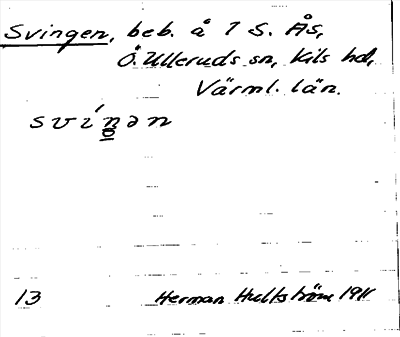 Svingen, beb. å 1 S. Ås,
Ö. Ulleruds sn, Kils hd,
Värml. län.
svíŋən
13 Herman Hultström 1911